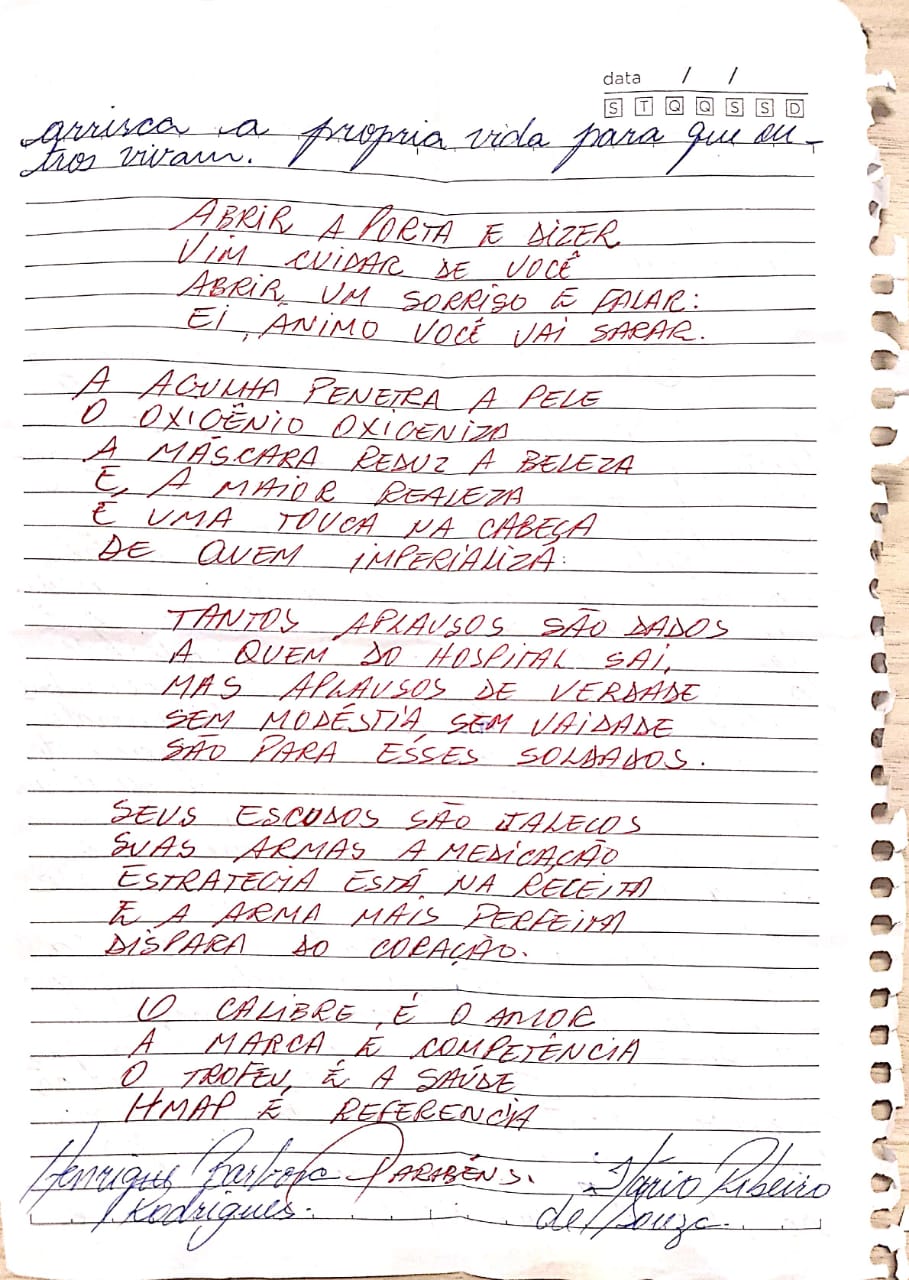 data / /
S T Q Q S S D
arrisca a propria vida para que ou-
tros vivam.
ABRIR A PORTA E DIZER
VIM CUIDAR DE VOCÊ
ABRIR UM SORRISO E FALAR:
EI, ÂNIMO VOCÊ VAI SARAR.
A AGULHA PENETRA A PELE
O OXIGÊNIO OXIGENIZA
A MÁSCARA REDUZ A BELEZA
E, A MAIOR REALEZA
É UMA TOUCA NA CABEÇA
DE QUEM IMPERIALIZA.
TANTOS APLAUSOS SÃO DADOS
A QUEM DO HOSPITAL SAI,
MAS APLAUSOS DE VERDADE
SEM MODÉSTIA, SEM VAIDADE
SÃO PARA ESSES SOLDADOS.
SEUS ESCUDOS SÃO JALECOS
SUAS ARMAS A MEDICAÇÃO
ESTRATEGIA ESTÁ NA RECEITA
E A ARMA MAIS PERFEITA
DISPARA DO CORAÇÃO.
O CALIBRE, É O AMOR
A MARCA É COMPETÊNCIA
O TROFÉU, É A SAÚDE
HMAP É REFERENCIA
PARABÉNS.
Henrique Barbosa Rodrigues.
Ribeiro
de Souza.